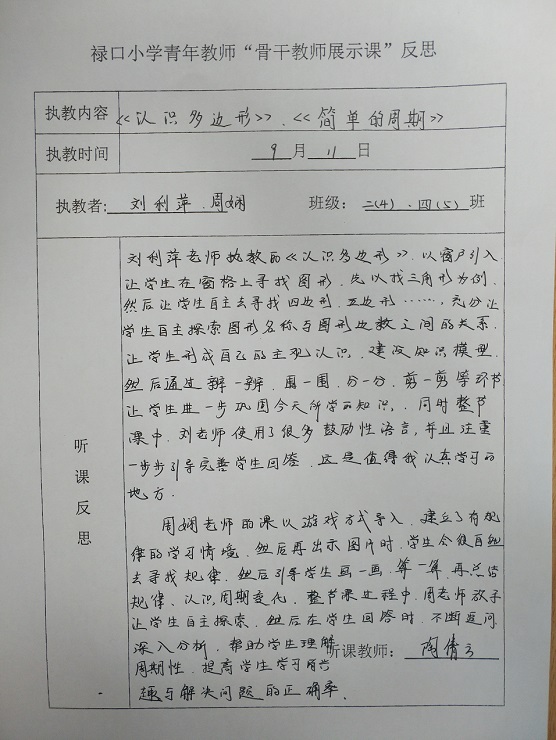 禄口小学青年教师“骨干教师展示课”反思
执教内容 《认识多边形》、《简单的周期》
执教时间 9 月 11 日
执教者: 刘利萍、周娴 班级: 二(4)、四(5) 班
听课反思
刘利萍老师执教的《认识多边形》, 以窗户引入
让学生在窗格上寻找图形, 先以找三角形为例,
然后让学生自主去寻找四边形, 五边形……, 充份让
学生自主探索图形名称与图形边数之间的关系,
让学生形成自己的主观认识, 建设知识模型,
然后通过辨一辨、围一围、分一分、剪一剪等环节
让学生进一步巩固今天所学的知识, 同时整节
课中, 刘老师使用了很多鼓励性语言, 并且注重
一步步引导完善学生回答, 这是值得我认真学习的
地方.
周娴老师的课以游戏方式导入, 建立了有规
律的学习情境, 然后再出示图片时, 学生会很自然
去寻找规律, 然后引导学生画一画, 算一算, 再总结
规律、认识周期变化, 整节课过程中, 周老师放手
让学生自主探索, 然后在学生回答时, 不断追问
深入分析, 帮助学生理解
周期性, 提高学生学习
趣与解决问题的正确率.
听课教师: 陶倩云